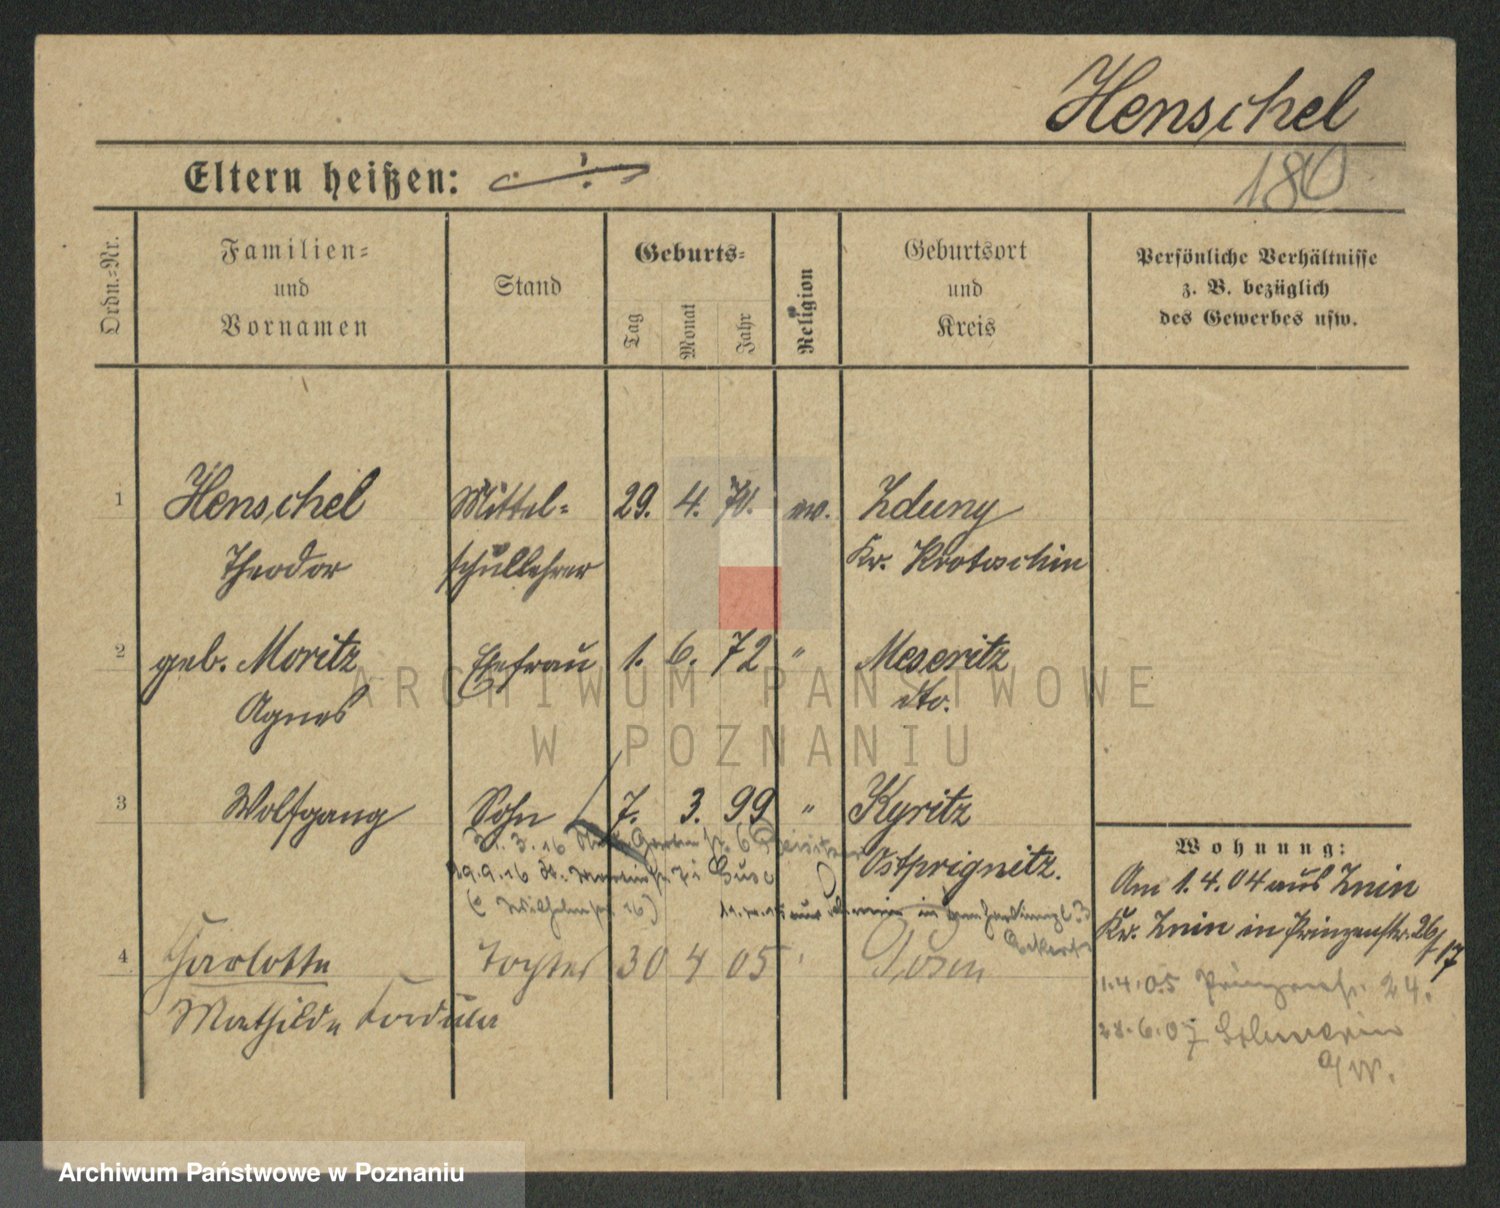 Henschel
180
Eltern heißen:
Ordn.=Nr.
Familien=
und
Vornamen
Stand
Geburts=
Tag
Monat
Jahr
Religion
Geburtsort
und
Kreis
Persönliche Verhältnisse
z. B. bezüglich
des Gewerbes usw.
1 Henschel Mittel= 29. 4. 70. ev. Zduny
Theodor schullehrer Kr. Krotoschin
2 geb. Moritz Ehefrau 1. 6. 72 " Meseritz
Agnes dto.
3 Wolfgang Sohn 7. 3. 99 " Kyritz
Ostprignitz.
21. 3. 16
29. 9. 16 St. Martinstr.
Wilhelmstr. 16)
4 Charlotte Tochter 30 4 05 " Posen
Mathilde Kordula
Wohnung:
Am 1. 4. 04 aus Znin
Kr. Znin in Prinzenstr. 26/17
1. 4. 05 Prinzenstr. 24.
28. 6. 07 Schwerin
a/W.
ARCHIWUM PAŃSTWOWE
W POZNANIU
Archiwum Państwowe w Poznaniu